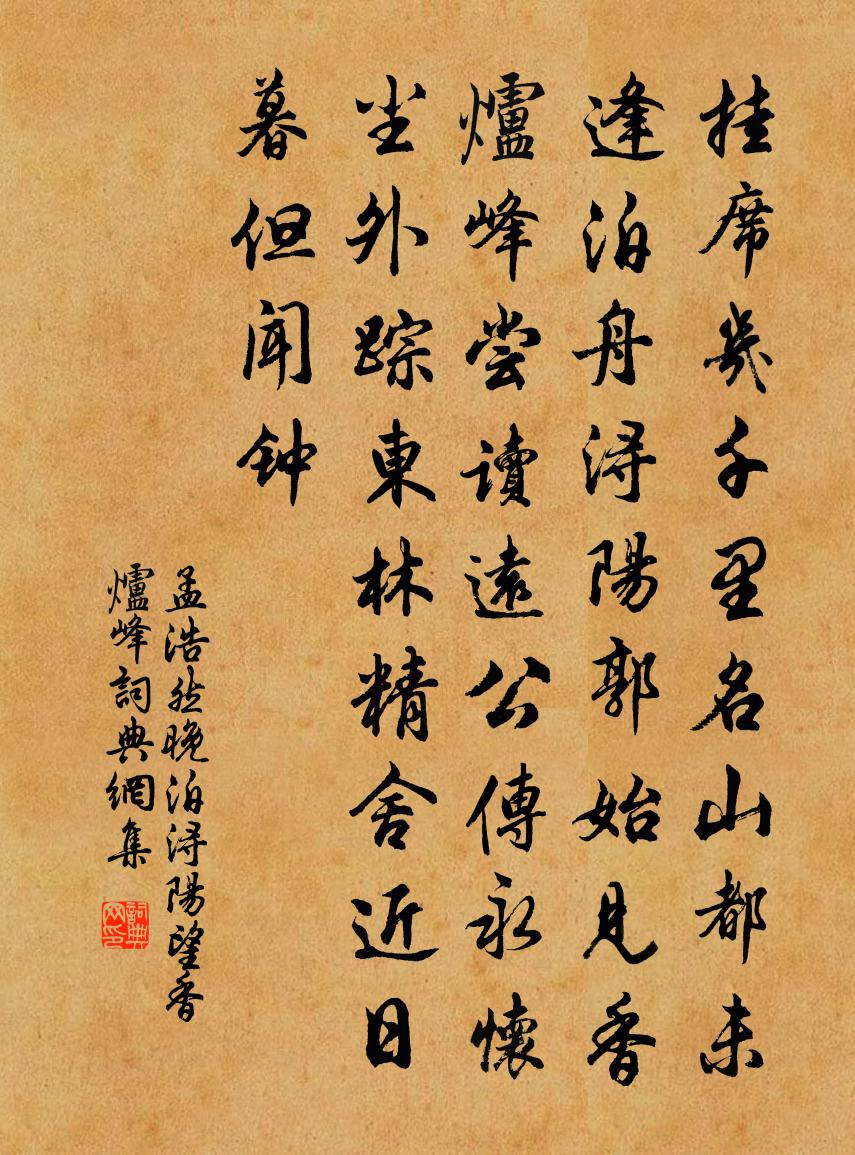 挂席幾千里名山都未
逢泊舟浔陽郭始見香
爐峰尝讀遠公傳永懷
尘外踪東林精舍近日
暮但闻钟
孟浩然晚泊浔陽望香
爐峰詞典網集
詞典
网印